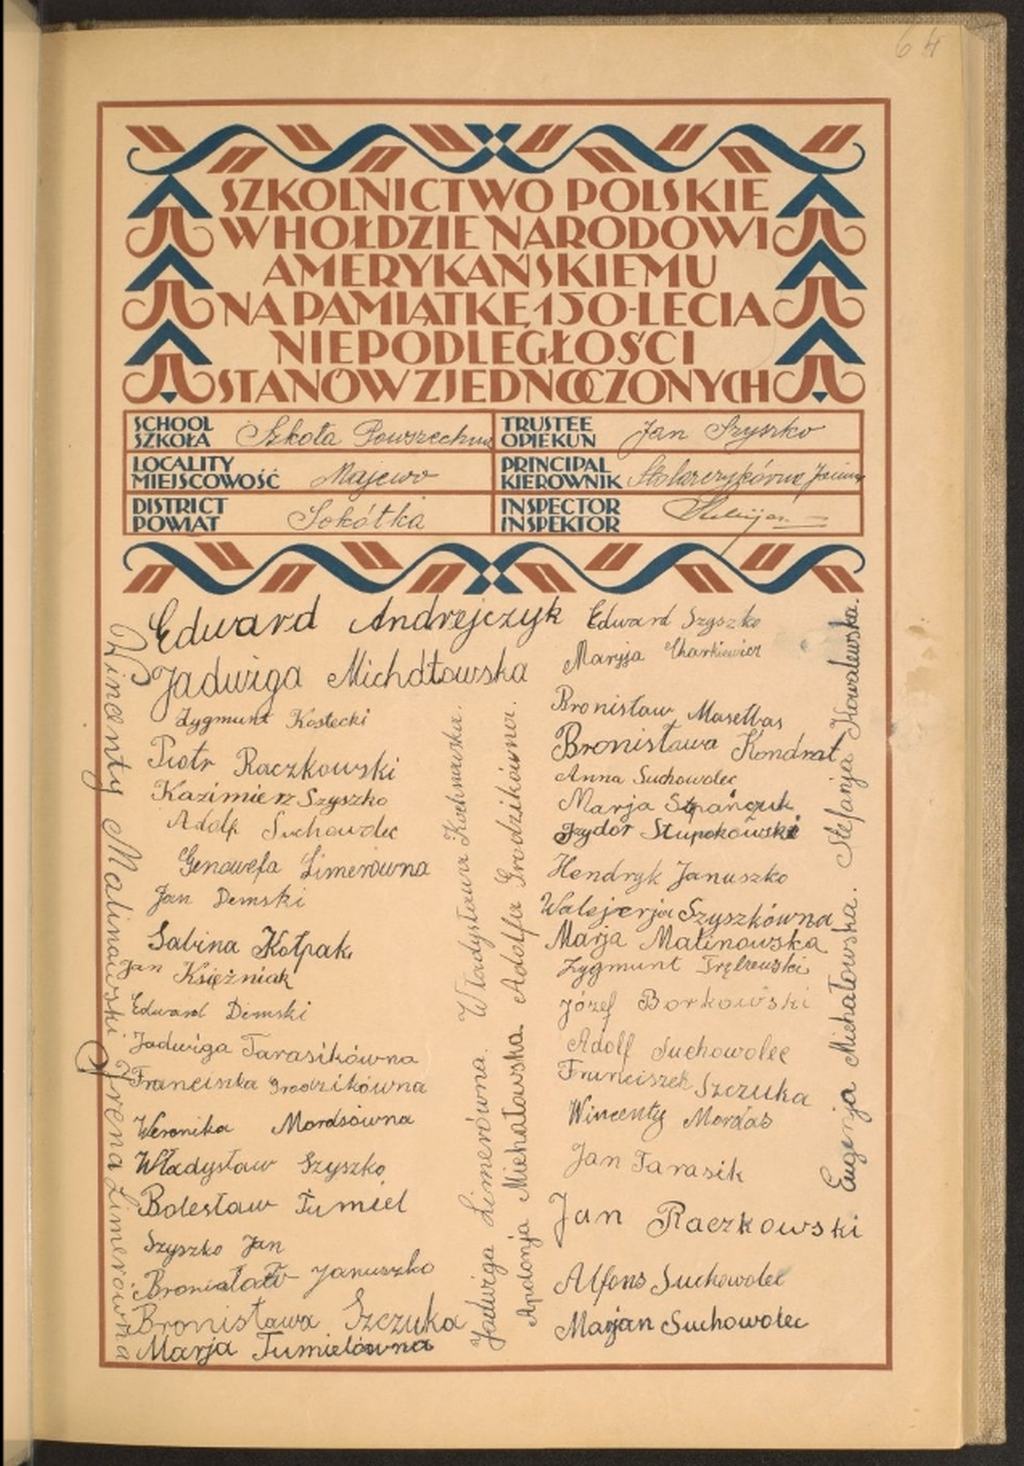 64
SZKOLNICTWO POLSKIE
W HOŁDZIE NARODOWI
AMERYKAŃSKIEMU
NA PAMIĄTKĘ 150-LECIA
NIEPODLEGŁOŚCI
STANÓW ZJEDNOCZONYCH
SCHOOL
SZKOŁA Szkoła Powszechna
TRUSTEE
OPIEKUN Jan Szyszko
LOCALITY
MIEJSCOWOŚĆ Majewo
PRINCIPAL
KIEROWNIK Stolarczykówna Janina
DISTRICT
POWIAT Sokółka
INSPECTOR
INSPEKTOR
Edward Andrejczyk
Jadwiga Michałowska
Zygmunt Kostecki
Piotr Raczkowski
Kazimierz Szyszko
Adolf Suchowolec
Genowefa Limerówna
Jan Demski
Sabina Kołpak
Jan Księżniak
Edward Demski
Jadwiga Tarasikówna
Franciszka Grodzikówna
Weronika Mordsówna
Władysław Szyszko
Bolesław Tumiel
Szyszko Jan
Januszko
Bronisława Szczuka
Marja Tumielówna
Wincenty Malinowski Irena Limerówna
Jadwiga Limerówna. Władysława
Apolonja Michałowska. Adolfa Grodzikówna.
Edward Szyszko
Maryja
Bronisław
Bronisława Kondrat
Anna Suchowolec
Marja
Izydor
Hendryk Januszko
Walejerja Szyszkówna
Marja Malinowska
Zygmunt
Józef Borkowski
Adolf Suchowolec
Franciszek Szczuka
Wincenty Mordas
Jan Tarasik
Jan Raczkowski
Alfons Suchowolec
Marjan Suchowolec
Eugenja Michałowska. Stefanja Kowalewska.